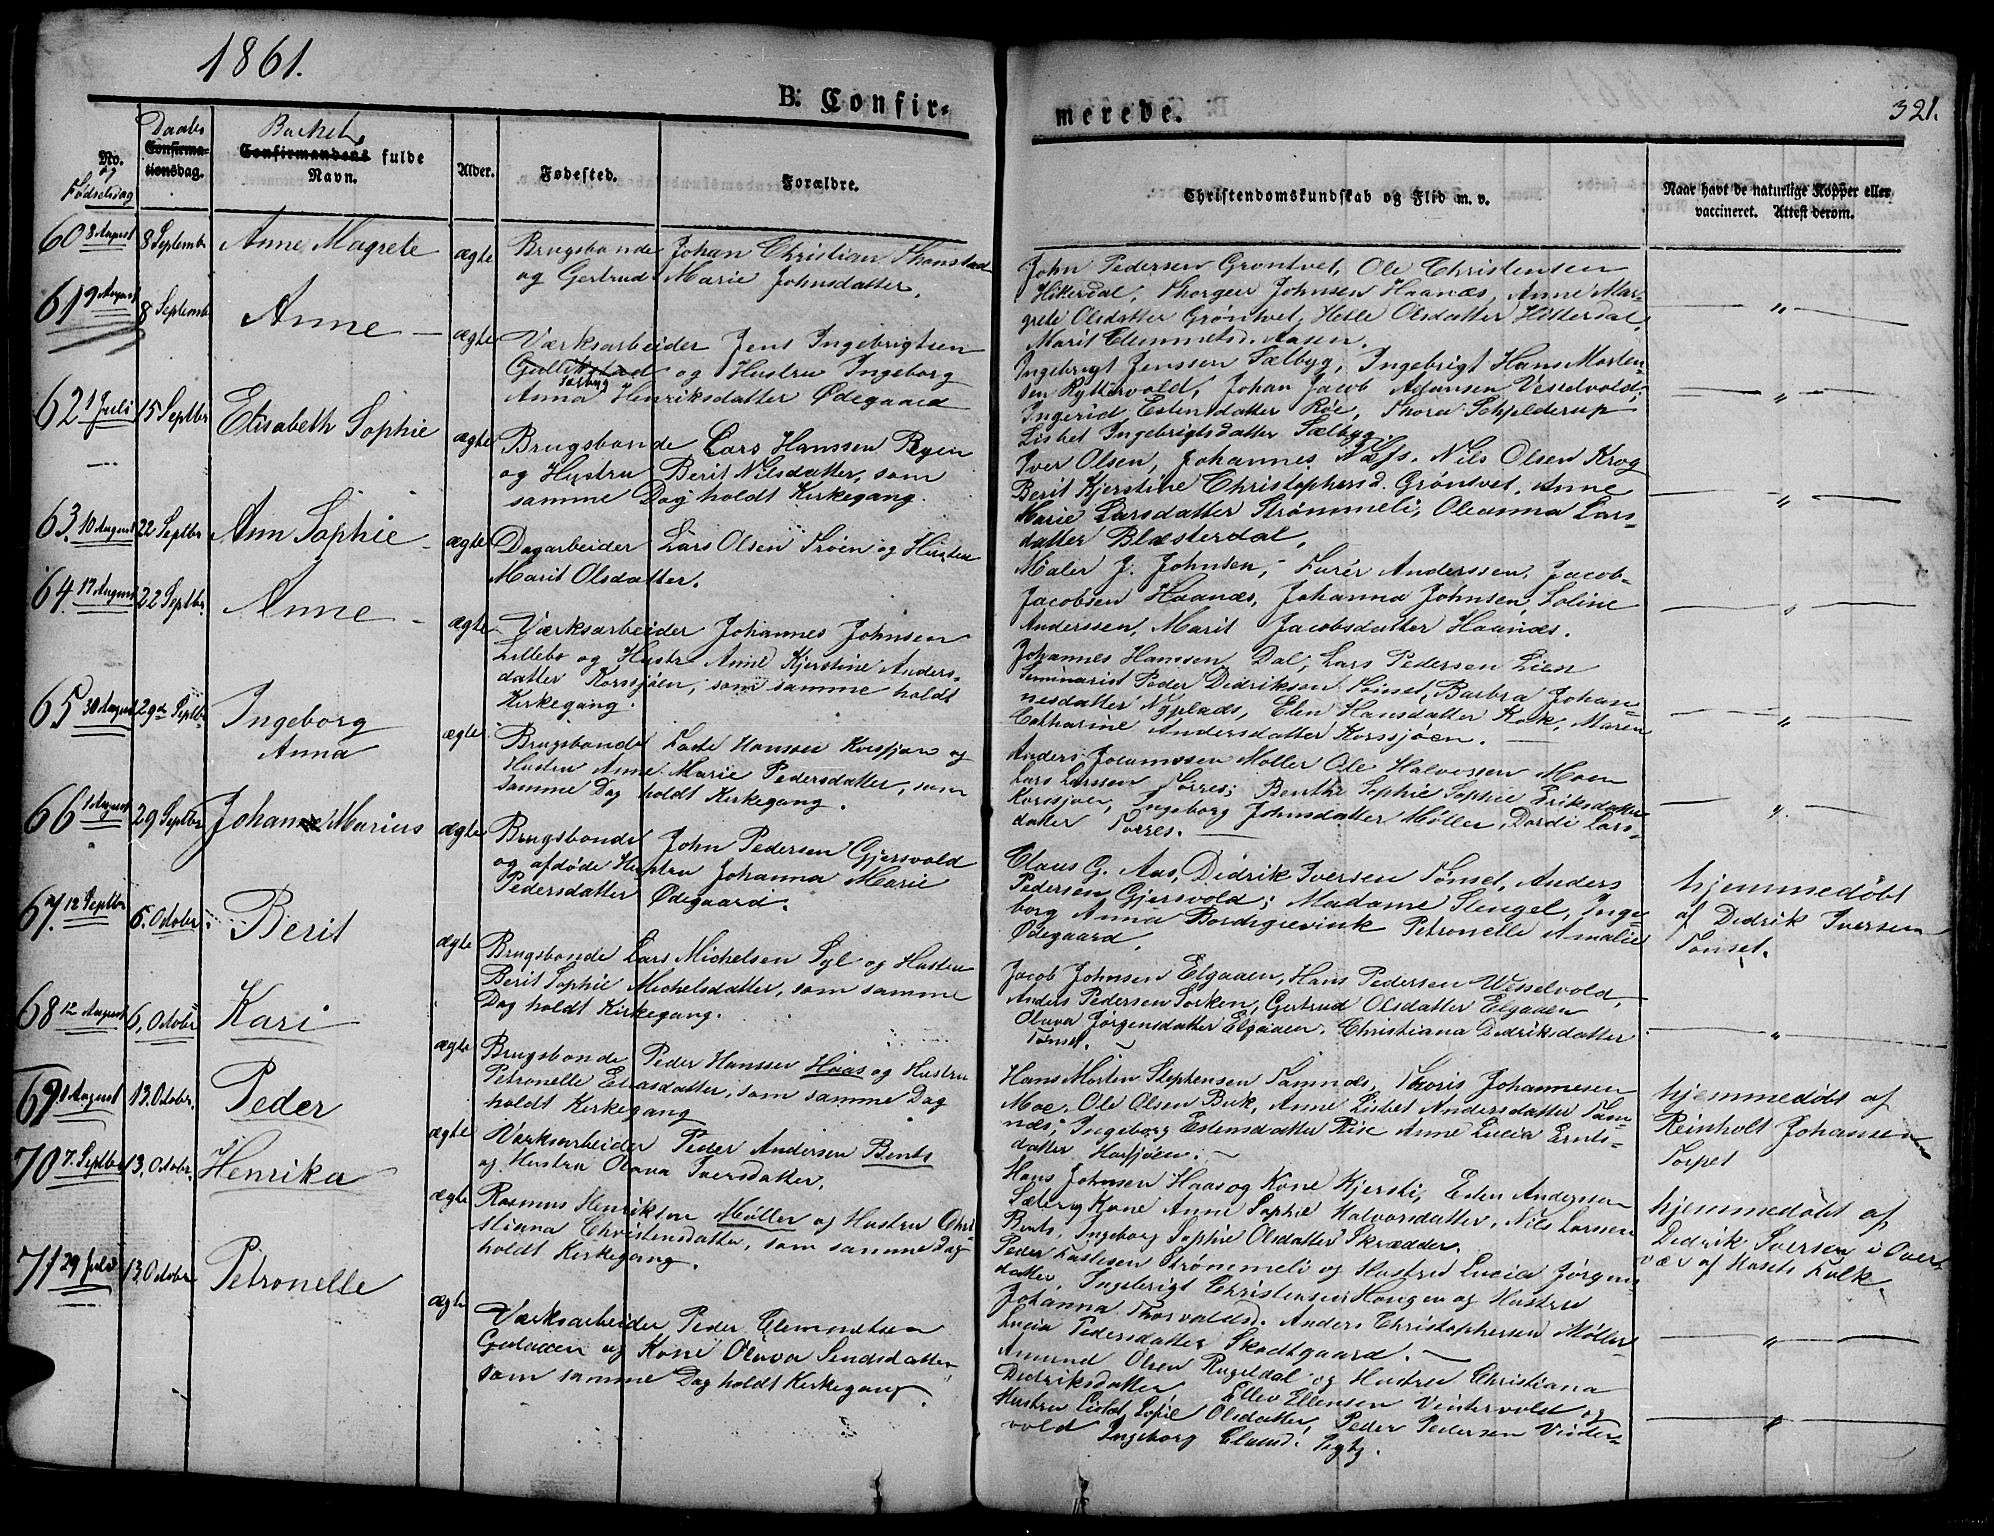 1861.
B: Confir-
merede.
321.
No. og Fødselsdag
Daabs
Confirma-
tionsdag.
Barnets
Confirmandens fulde
Navn.
Alder.
Fødested.
Forældre.
Christendomskundskab og Flid m. v.
Naar havt de naturlige Kopper eller
vaccineret. Attest derom.
60 8 August 8 Septembr Anne Magrete ægte
Brugsbonde Johan Christian
og Gertrud Marie Johnsdatter.
John Pedersen Grøntvet, Ole Christensen
Hitterdal, Thorger Johnsen Haanæs, Anne Mar-
grete Olsdatter Grøntvet, Helle Olsdatter Hitterdal,
Marit Clemmetsd. Aasen.
61 9 August 8 Septembr Anne ægte
Værksarbeider Jens Ingebrigtsen
Gullikstad og Hustru Ingeborg
Sælbyg
Anna Henriksdatter Ødegaard
Ingebrigt Jenssen Sælbyg, Ingebrigt Hans Morten-
sen Ryttervold, Johan Jacob Vesselvold,
Ingerid Estensdatter Røe, Thora Schjelderup
Lisbet Ingebrigtsdatter Sælbyg.
62 1 Juli 15 Septbr Elisabeth Sophie ægte
Brugsbonde Lars Hanssen Byen
og Hustru Berit Nilsdatter, som
samme Dag holdt Kirkegang.
Iver Olsen, Johannes Næss. Nils Olsen Krog
Berit Kjerstine Christophersd. Grøntvet, Anne
Marie Larsdatter Strømmeli, Oleanna Lars-
datter Blæsterdal.
63. 10 August 22 Septbr Ann Sophie ægte
Dagarbeider Lars Olsen Trøen og Hustru
Marit Olsdatter.
Maler J. Johnsen, Anderssen, Jacob
Jacobsen Haanæs, Johanna Johnsen, Soline
Anderssen, Marit Jacobsdatter Haanæs.
64. 17 August 22 Septbr. Anne ægte
Værksarbeider Johannes Johnsen
Lillebo og Hustr. Anne Kjerstine Anders-
datter Korssjøen, som samme holdt
Kirkegang.
Johannes Hanssen Dal, Lars Pedersen Lien
Seminarist Peder Didriksen Tønset, Barbra Johan-
nesdatter Nyplads, Elen Hansdatter Kok, Maren
Catharine Andersdatter Korssjøen.
65 30 August 29de Septbr Ingeborg
Anna ægte
Brugsbonde Hanssen Korssjøen og
Hustru Anne Marie Pedersdatter, som
samme Dag holdt Kirkegang.
Anders Møller Ole Halvorsen Moen
Lars Larssen Torres; Benthe Sophie Sophie Eriksdatter
Korssjøen, Ingeborg Johnsdatter Møller, Dordi Lars-
datter Torres.
66 1 August 29 Septbr Johan Marius ægte
Brugsbonde John Pedersen Gjersvold
og afdøde Hustru Johanna Marie
Pedersdatter Ødegaard.
Claus G. Aas, Didrik Iversen Tønset, Anders
Pedersen Gjersvold; Madame Stengel, Inge-
borg Anna Bordigrevink Petronelle Amalie
Ødegaard.
hjemmedøbt
af Didrik Iversen
Tønset.
67. 12 Septbr 6. October Berit ægte
Brugsbonde Lars Michelsen Syl og Hustru
Berit Sophie Michelsdatter, som samme
Dag holdt Kirkegang.
Jacob Johnsen Elgaaen, Hans Pedersen Wesselvold,
Anders Pedersen Sorken, Gertrud Olsdatter Elgaaen
Olava Jørgensdatter Elgaaen. Christiana Didriksdatter
Tønset.
68 12 August 6, October Kari ægte
Brugsbonde Peder Hanssen Haas og Hustru
Petronelle Eliasdatter, som samme Dag
holdt Kirkegang
Hans Morten Stephensen Tamnæs, Thoris Johannesen
Moe, Ole Olsen Buk, Anne Lisbet Andersdatter Tam-
næs; Ingeborg Estensdatter Rise Anne Lucia Ernts-
datter Harsjøen.
69 1 August 13. Octobr. Peder ægte
Værksarbeider Peder Andersen Bents
og Hustru Olava Iversdatter.
Hans Johnsen Haas og Kone Kjersti, Esten Anderssen
Sæter og Kone Anne Sophie Halvorsdatter, Nils Larsen
Bents, Ingeborg Sophie Olsdatter Skrædder.
hjemmedøbt af
Reinholt Johansen
Torpet
70 7. Septbr 13, Octobr. Henrika ægte
Rasmus Henriksen Møller og Hustru Chri-
stianna Christensdatter, som samme Dag
holdt Kirkegang.
Peder Strømmeli og Hustru Lucia Jørgens-
datter, Ingebrigt Christensen Haugen og Hustru
Johanna Thorvaldsd. Anders Christophersen Møller
Lucia Pedersdatter Skodtgaard.
hjemmedøbt af
Didrik Iversen i Over-
vær af Husets Folk.
71 29 Juli 13, October Petronelle ægte
Værksarbeider Peder Clemmetsen
og Kone Olava Sendsdatter
som samme Dag holdt Kirkegang.
Amund Olsen Rugeldal og Hustru Christiana
Didriksdatter Ellev Ellensen Vintervold og
Hustru Lisbet Sofie Olsdatter, Peder Pedersen Vinter-
vold Ingeborg